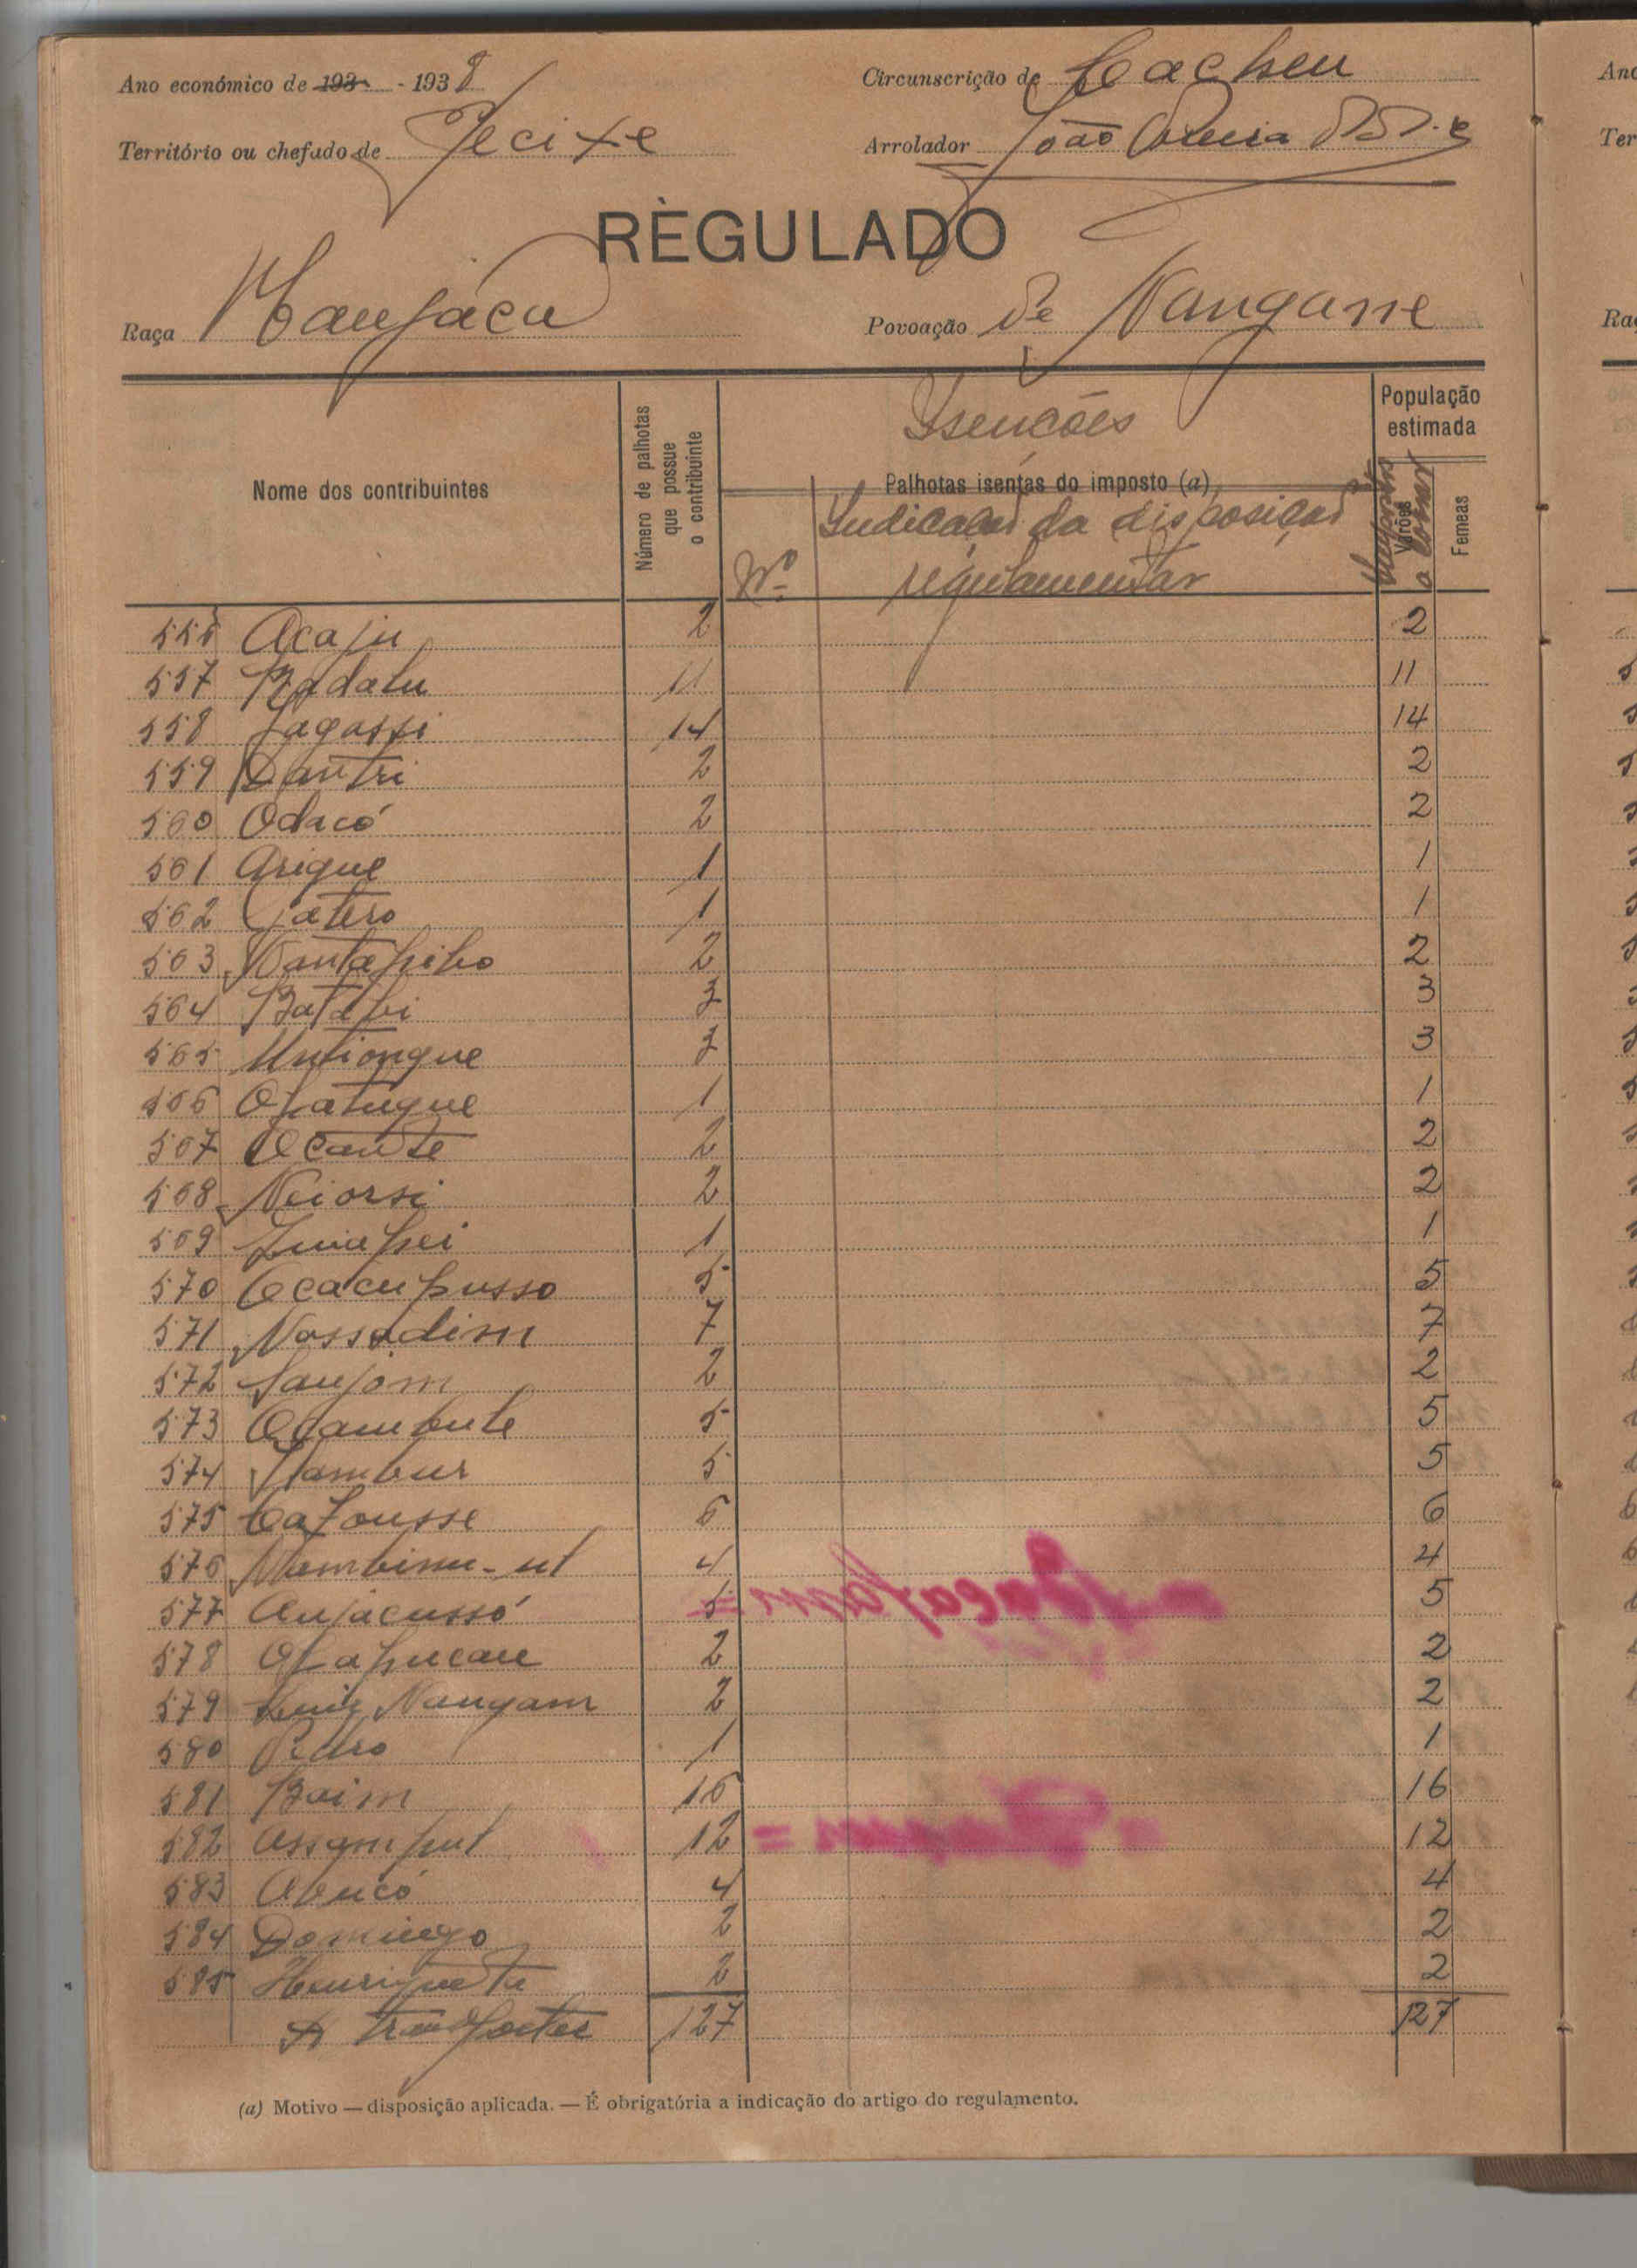 Ano económico de 193 - 1938
Circunscrição de Cacheu
Território ou chefado de Jecixe
Arrolador João Correia
RÈGULADO
Raça Manjáca
Povoação de Nangane
Nome dos contribuintes
Número de palhotas que possue o contribuinte
Isenções
Palhotas isentas do imposto (a)
Nº
Indicação da disposição
regulamentar
População estimada
Varões
Femeas
Palhotas a cobrar
556 Acaju 2 2
557 Badalu 11 11
558 Jagassi 14 14
559 Dantri 2 2
560 Odacó 2 2
561 Arique 1 1
562 Catero 1 1
563 Nantapibo 2 2
564 Batabi 3 3
565 Untiongue 3 3
566 Opatugue 1 1
567 Ocante 2 2
568 Neiorsi 2 2
569 1 1
570 Ocacupusso 5 5
571 Nossadim 7 7
572 Sanjom 2 2
573 Ocambute 5 5
574 Jambur 5 5
575 Cafousse 6 6
576 Mumbinu-ut 4 4
577 Anjacussó 5 5
578 Olapucau 2 2
579 Luiz Nangam 2 2
580 Pedro 1 1
581 Boim 16 16
582 Assamput 12 12
583 Abucó 4 4
584 Domingo 2 2
585 Henriqueta 2 2
A transportar 127 127
(a) Motivo — disposição aplicada. — É obrigatória a indicação do artigo do regulamento.